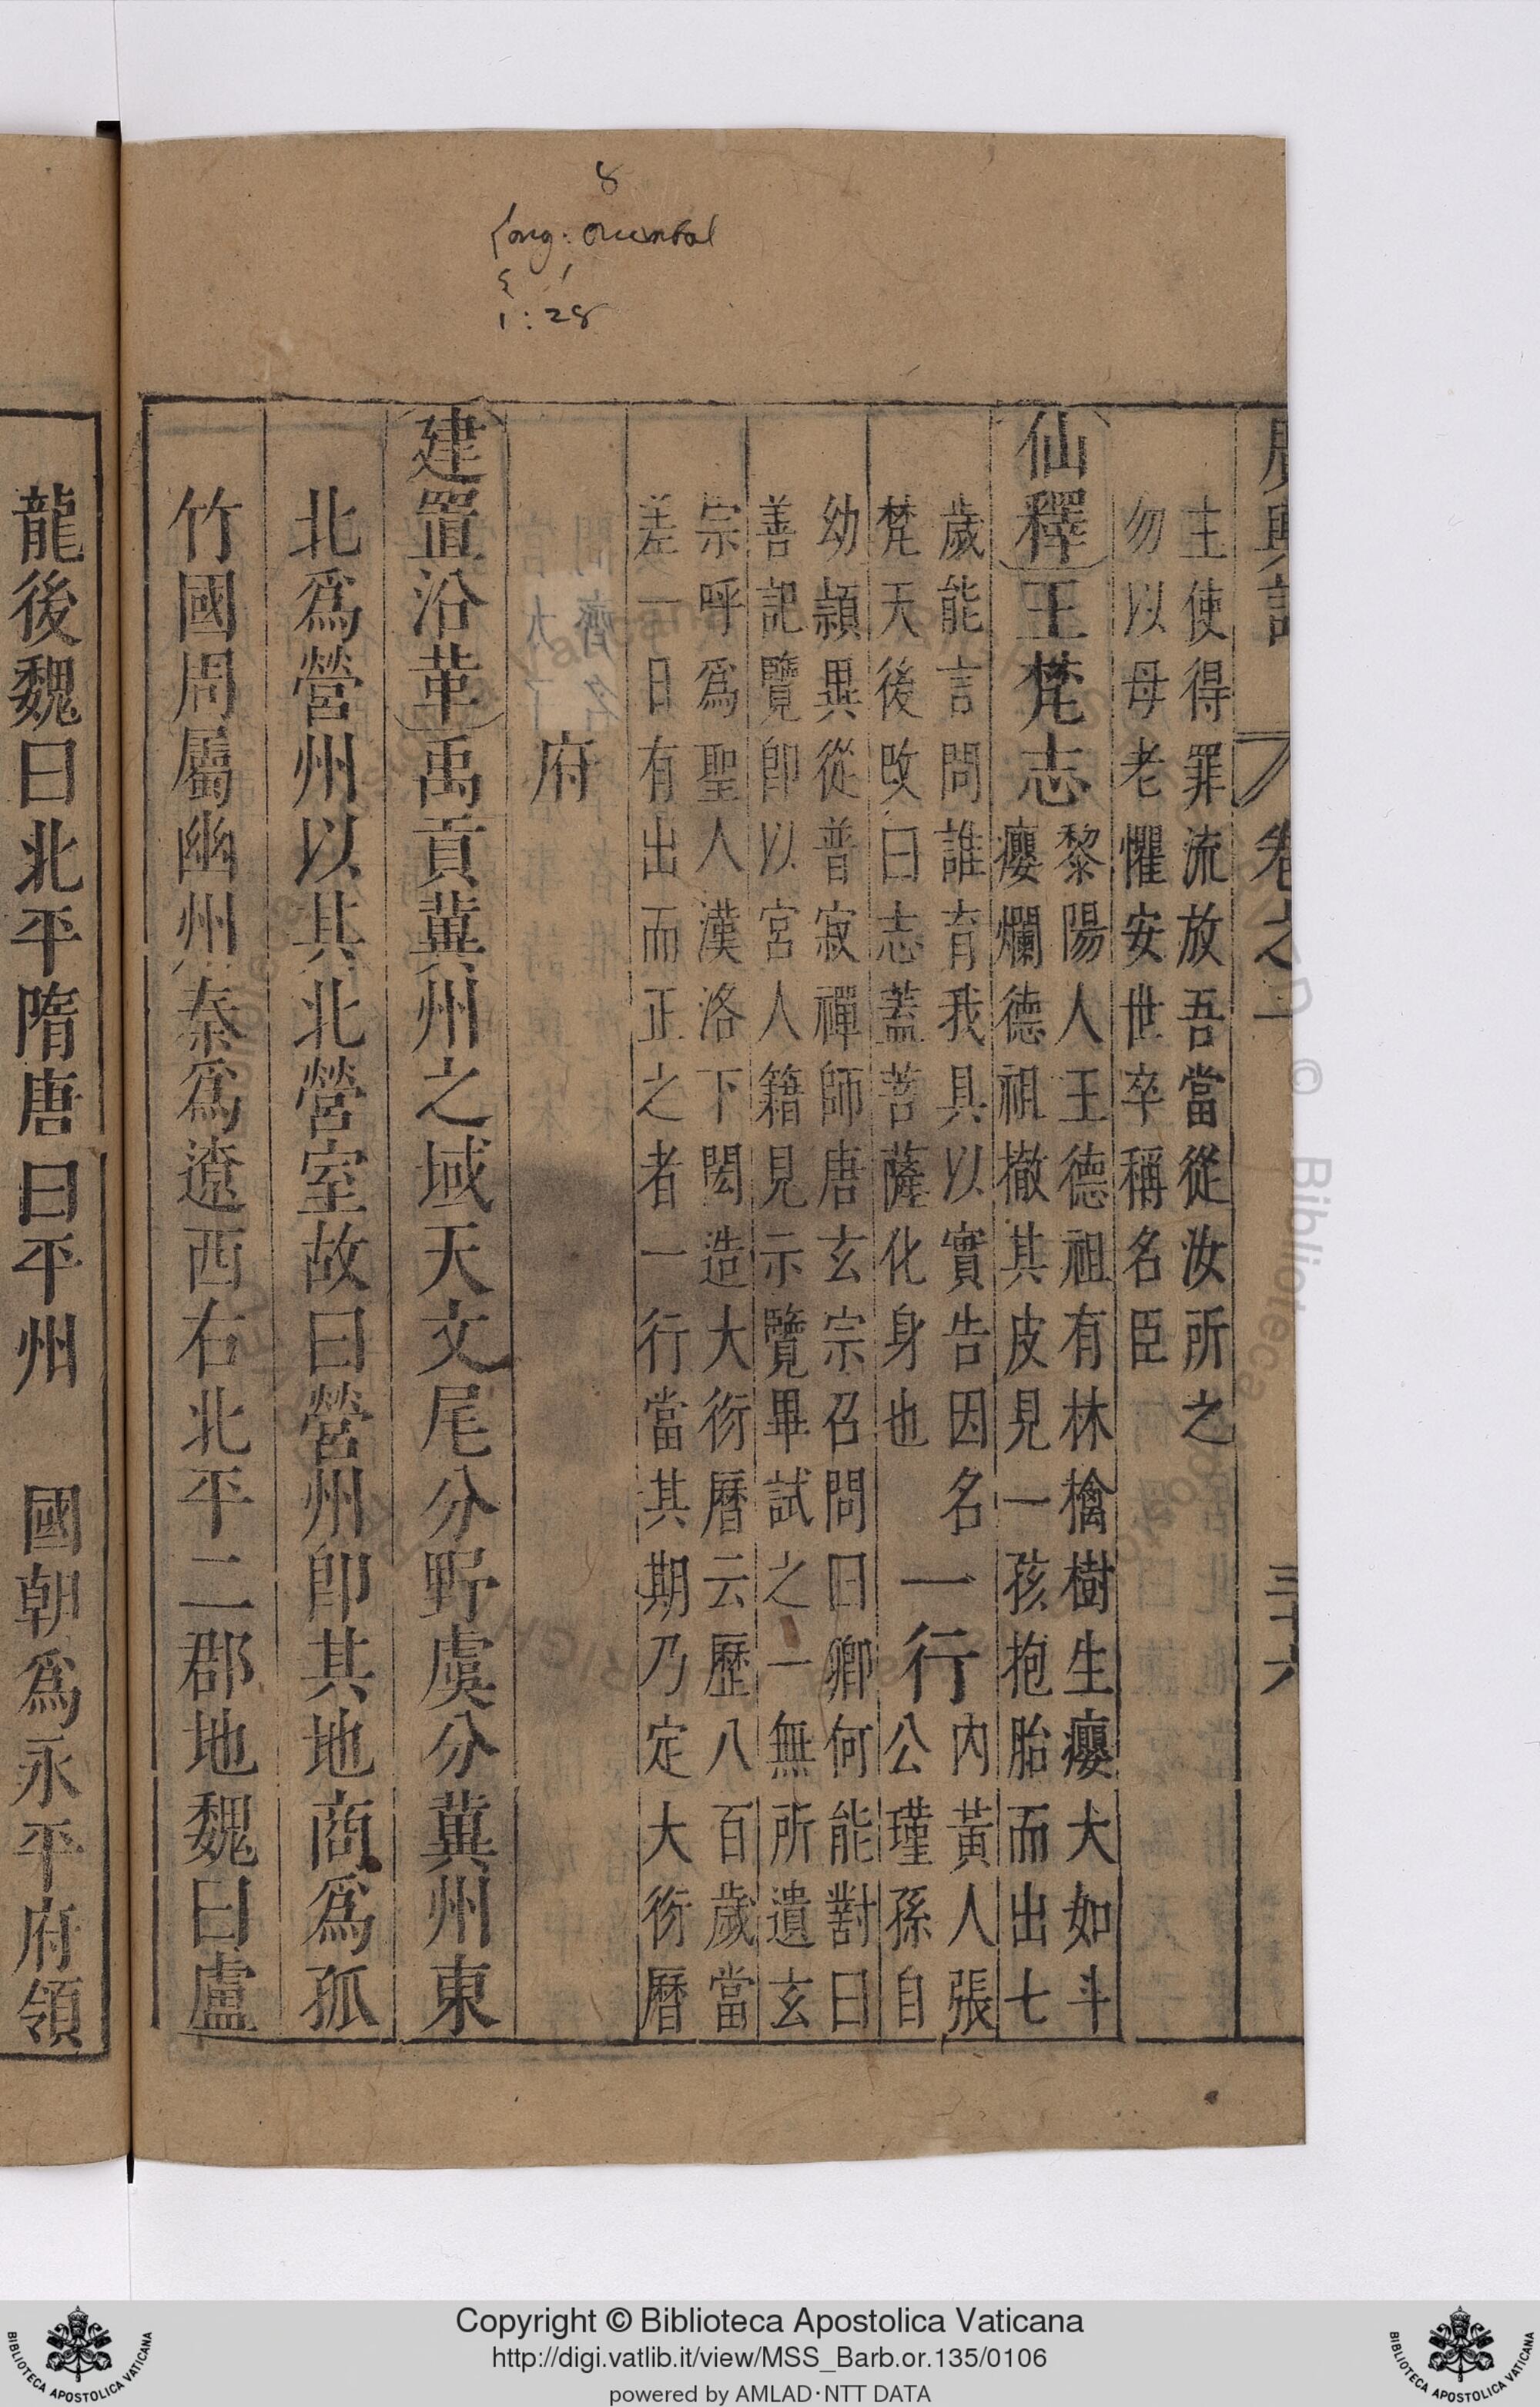 8
1:28
廣輿記 卷之一 三十六
主使得罪流放吾當從汝所之
勿以母老懼安世卒稱名臣
仙釋王梵志黎陽人王德祖有林檎樹生癭大如斗
癭爛德祖撤其皮見一孩抱胎而出七
歲能言問誰育我具以實告因名
梵天後改曰志蓋菩薩化身也
一行內黃人張
公瑾孫自
幼頴異從普寂禪師唐玄宗召問曰卿何能對曰
善記覽卽以宮人籍見示覽畢試之一無所遺玄
宗呼爲聖人漢洛下閎造大衍曆云歷八百歲當
差一日有出而正之者一行當其期乃定大衍曆
府
建置沿革禹貢冀州之域天文尾分野虞分冀州東
北爲營州以其北營室故曰營州卽其地商爲孤
竹國周屬幽州秦爲遼西右北平二郡地魏曰盧
龍後魏曰北平隋唐曰平州 國朝爲永平府領
Copyright © Biblioteca Apostolica Vaticana
http://digi.vatlib.it/view/MSS_Barb.or.135/0106
powered by AMLAD·NTT DATA
BIBLIOTECA APOSTOLICA VATICANA
BIBLIOTECA APOSTOLICA VATICANA